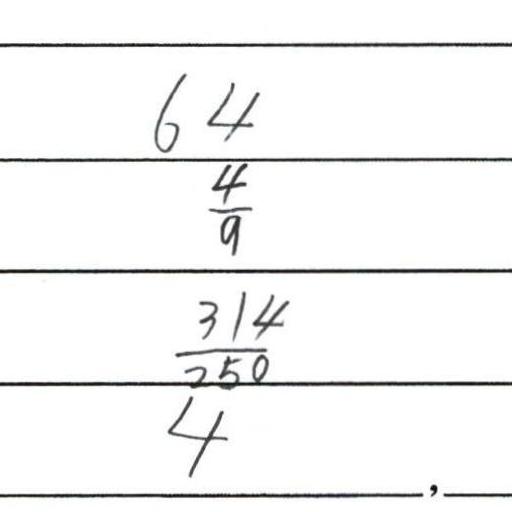 64
4/9
314/250
4
,